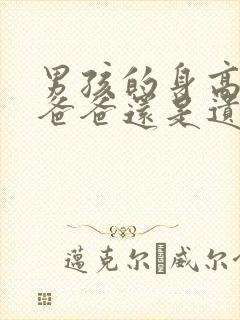 男孩的身高
爸爸還是遺
邁克尔 威尔